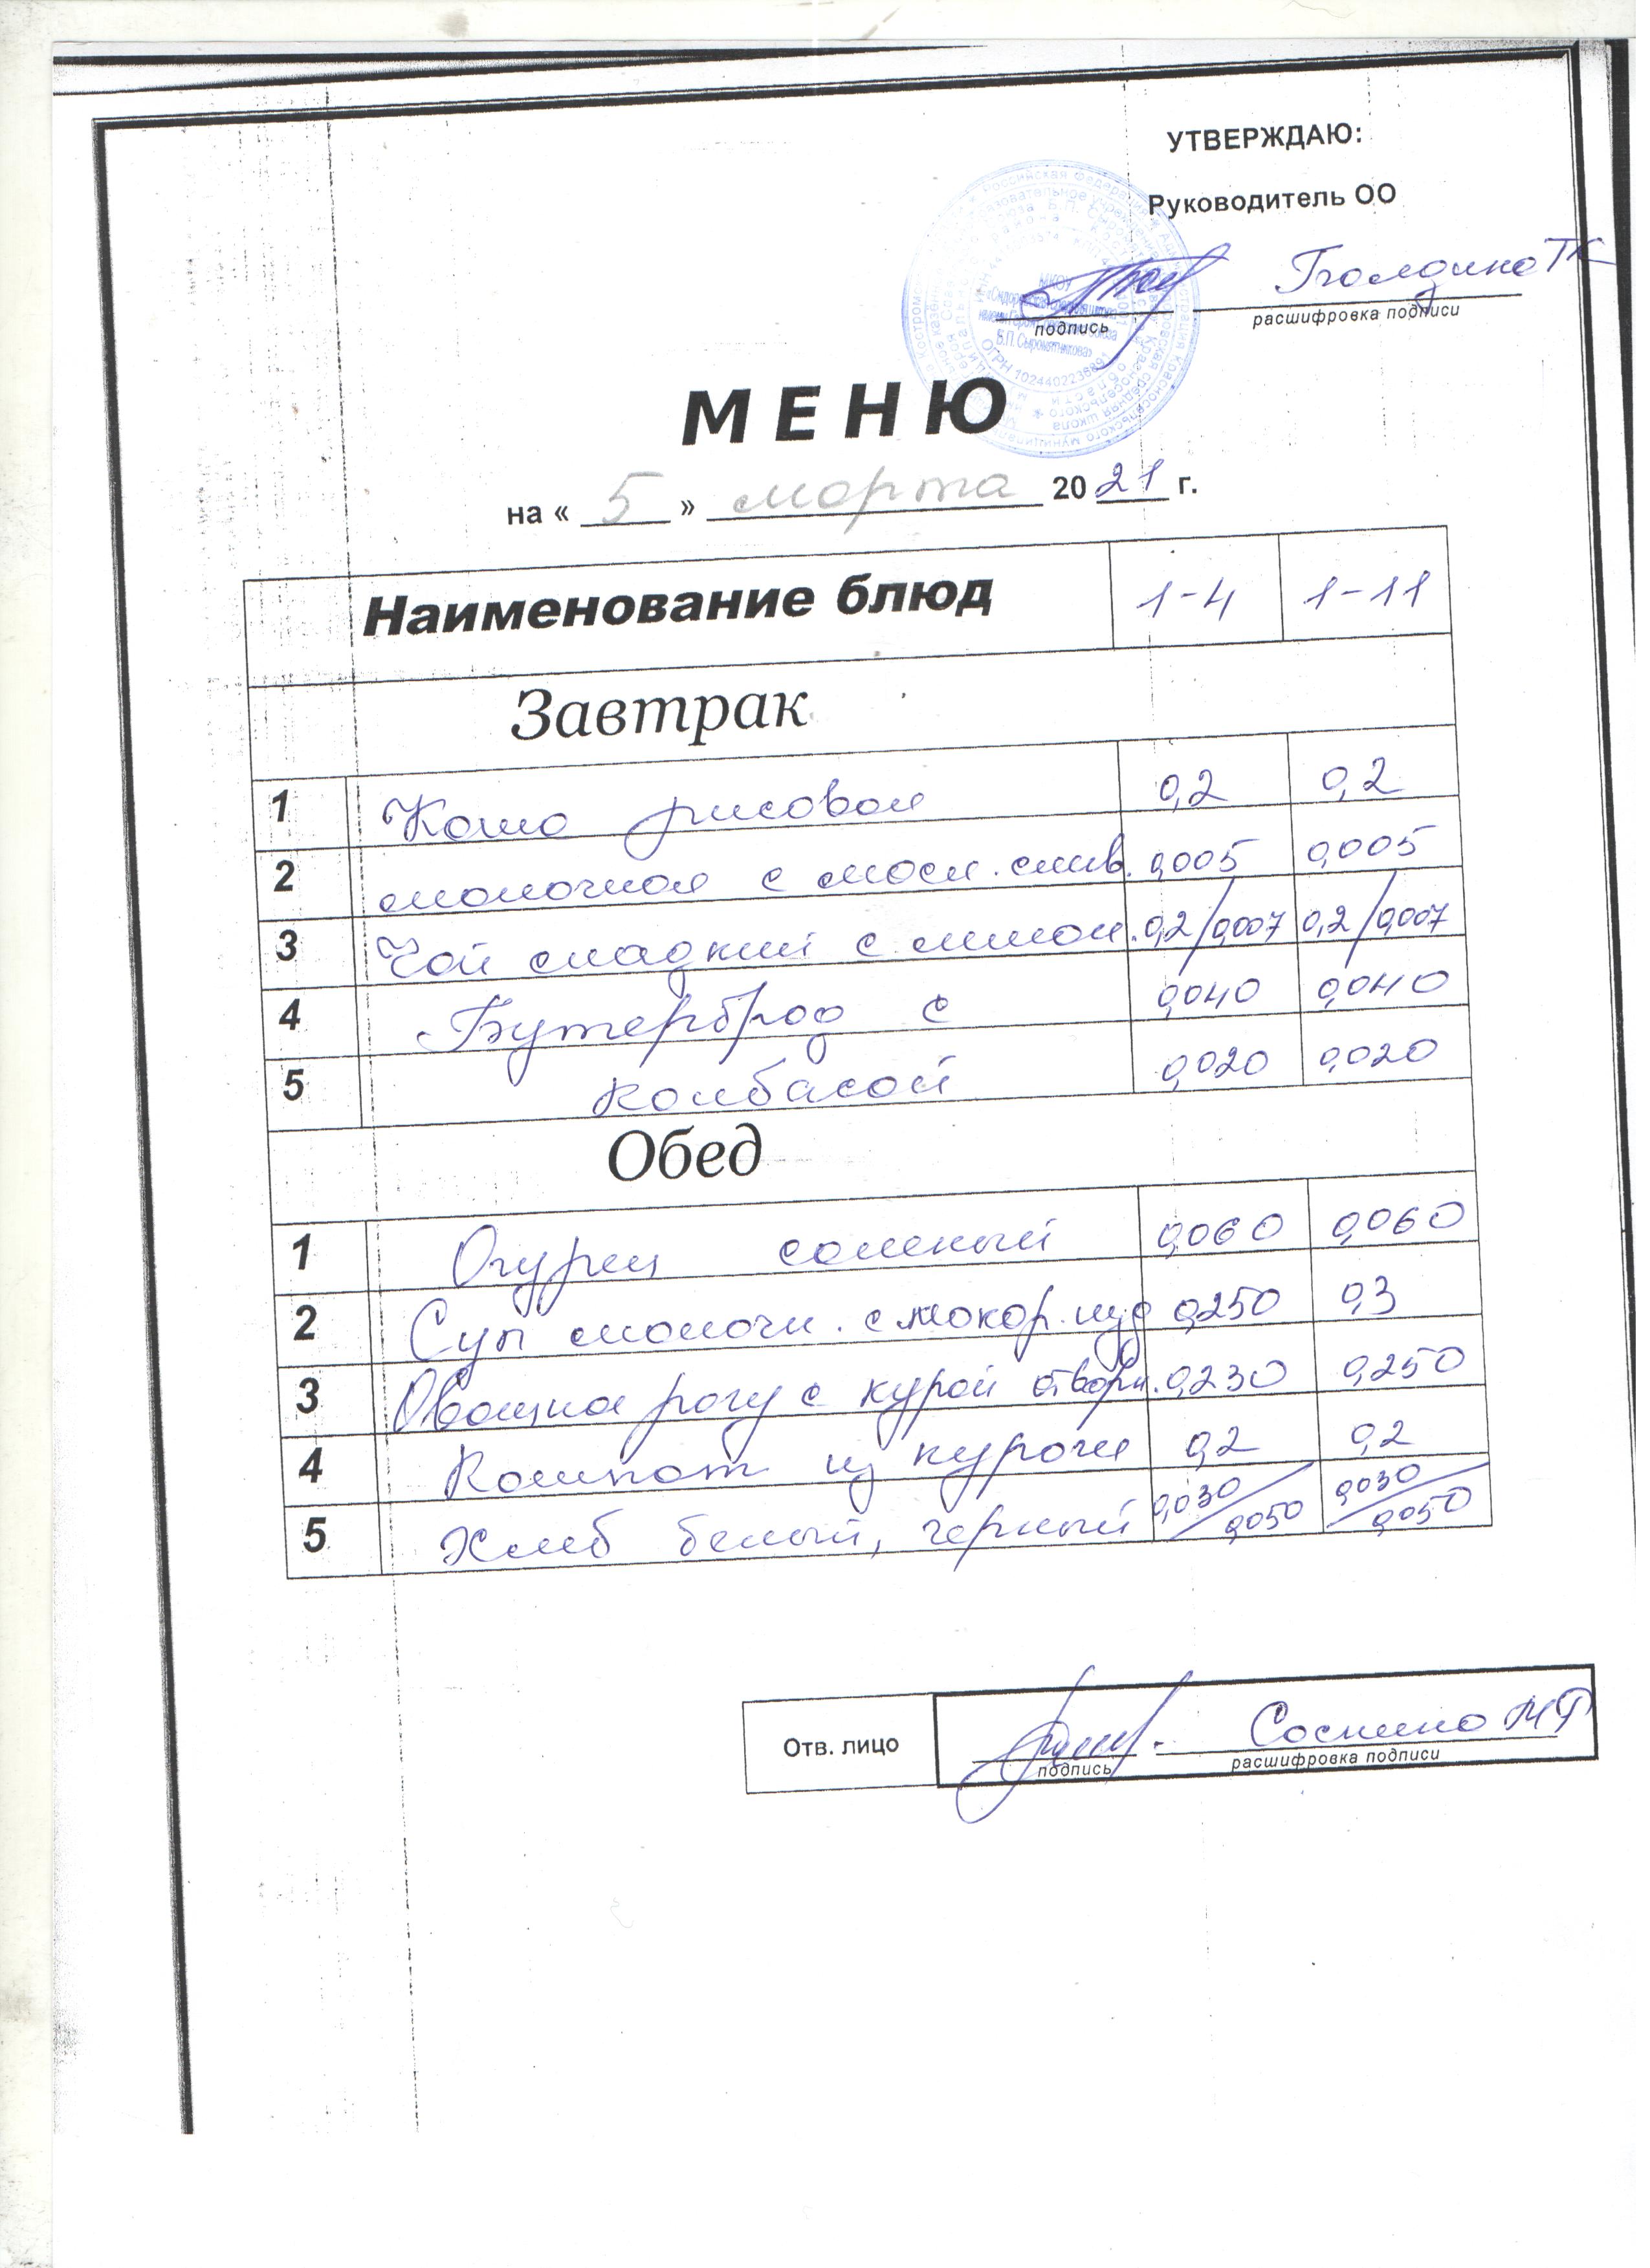 УТВЕРЖДАЮ:
Руководитель ОО
Болдина ТК
подпись расшифровка подписи
МКОУ
имени Героя Союза
Б.П. Сыромятникова»
МЕНЮ
на « 5 » марта 20 21 г.
Наименование блюд 1-4 1-11
Завтрак
1 Каша рисовая 0,2 0,2
2 молочная с масл. слив. 0,005 0,005
3 Чай сладкий с лимон. 0,2/0,007 0,2/0,007
4 Бутерброд с 0,040 0,040
5 колбасой 0,020 0,020
Обед
1 Огурец соленый 0,060 0,060
2 Суп молочн. с макар. изд 0,250 0,3
3 Овощное рагу с курой отварн. 0,230 0,250
4 Компот из кураги 0,2 0,2
5 Хлеб белый, черный 0,030/0,050 0,030/0,050
Отв. лицо Соснина МГ
подпись расшифровка подписи